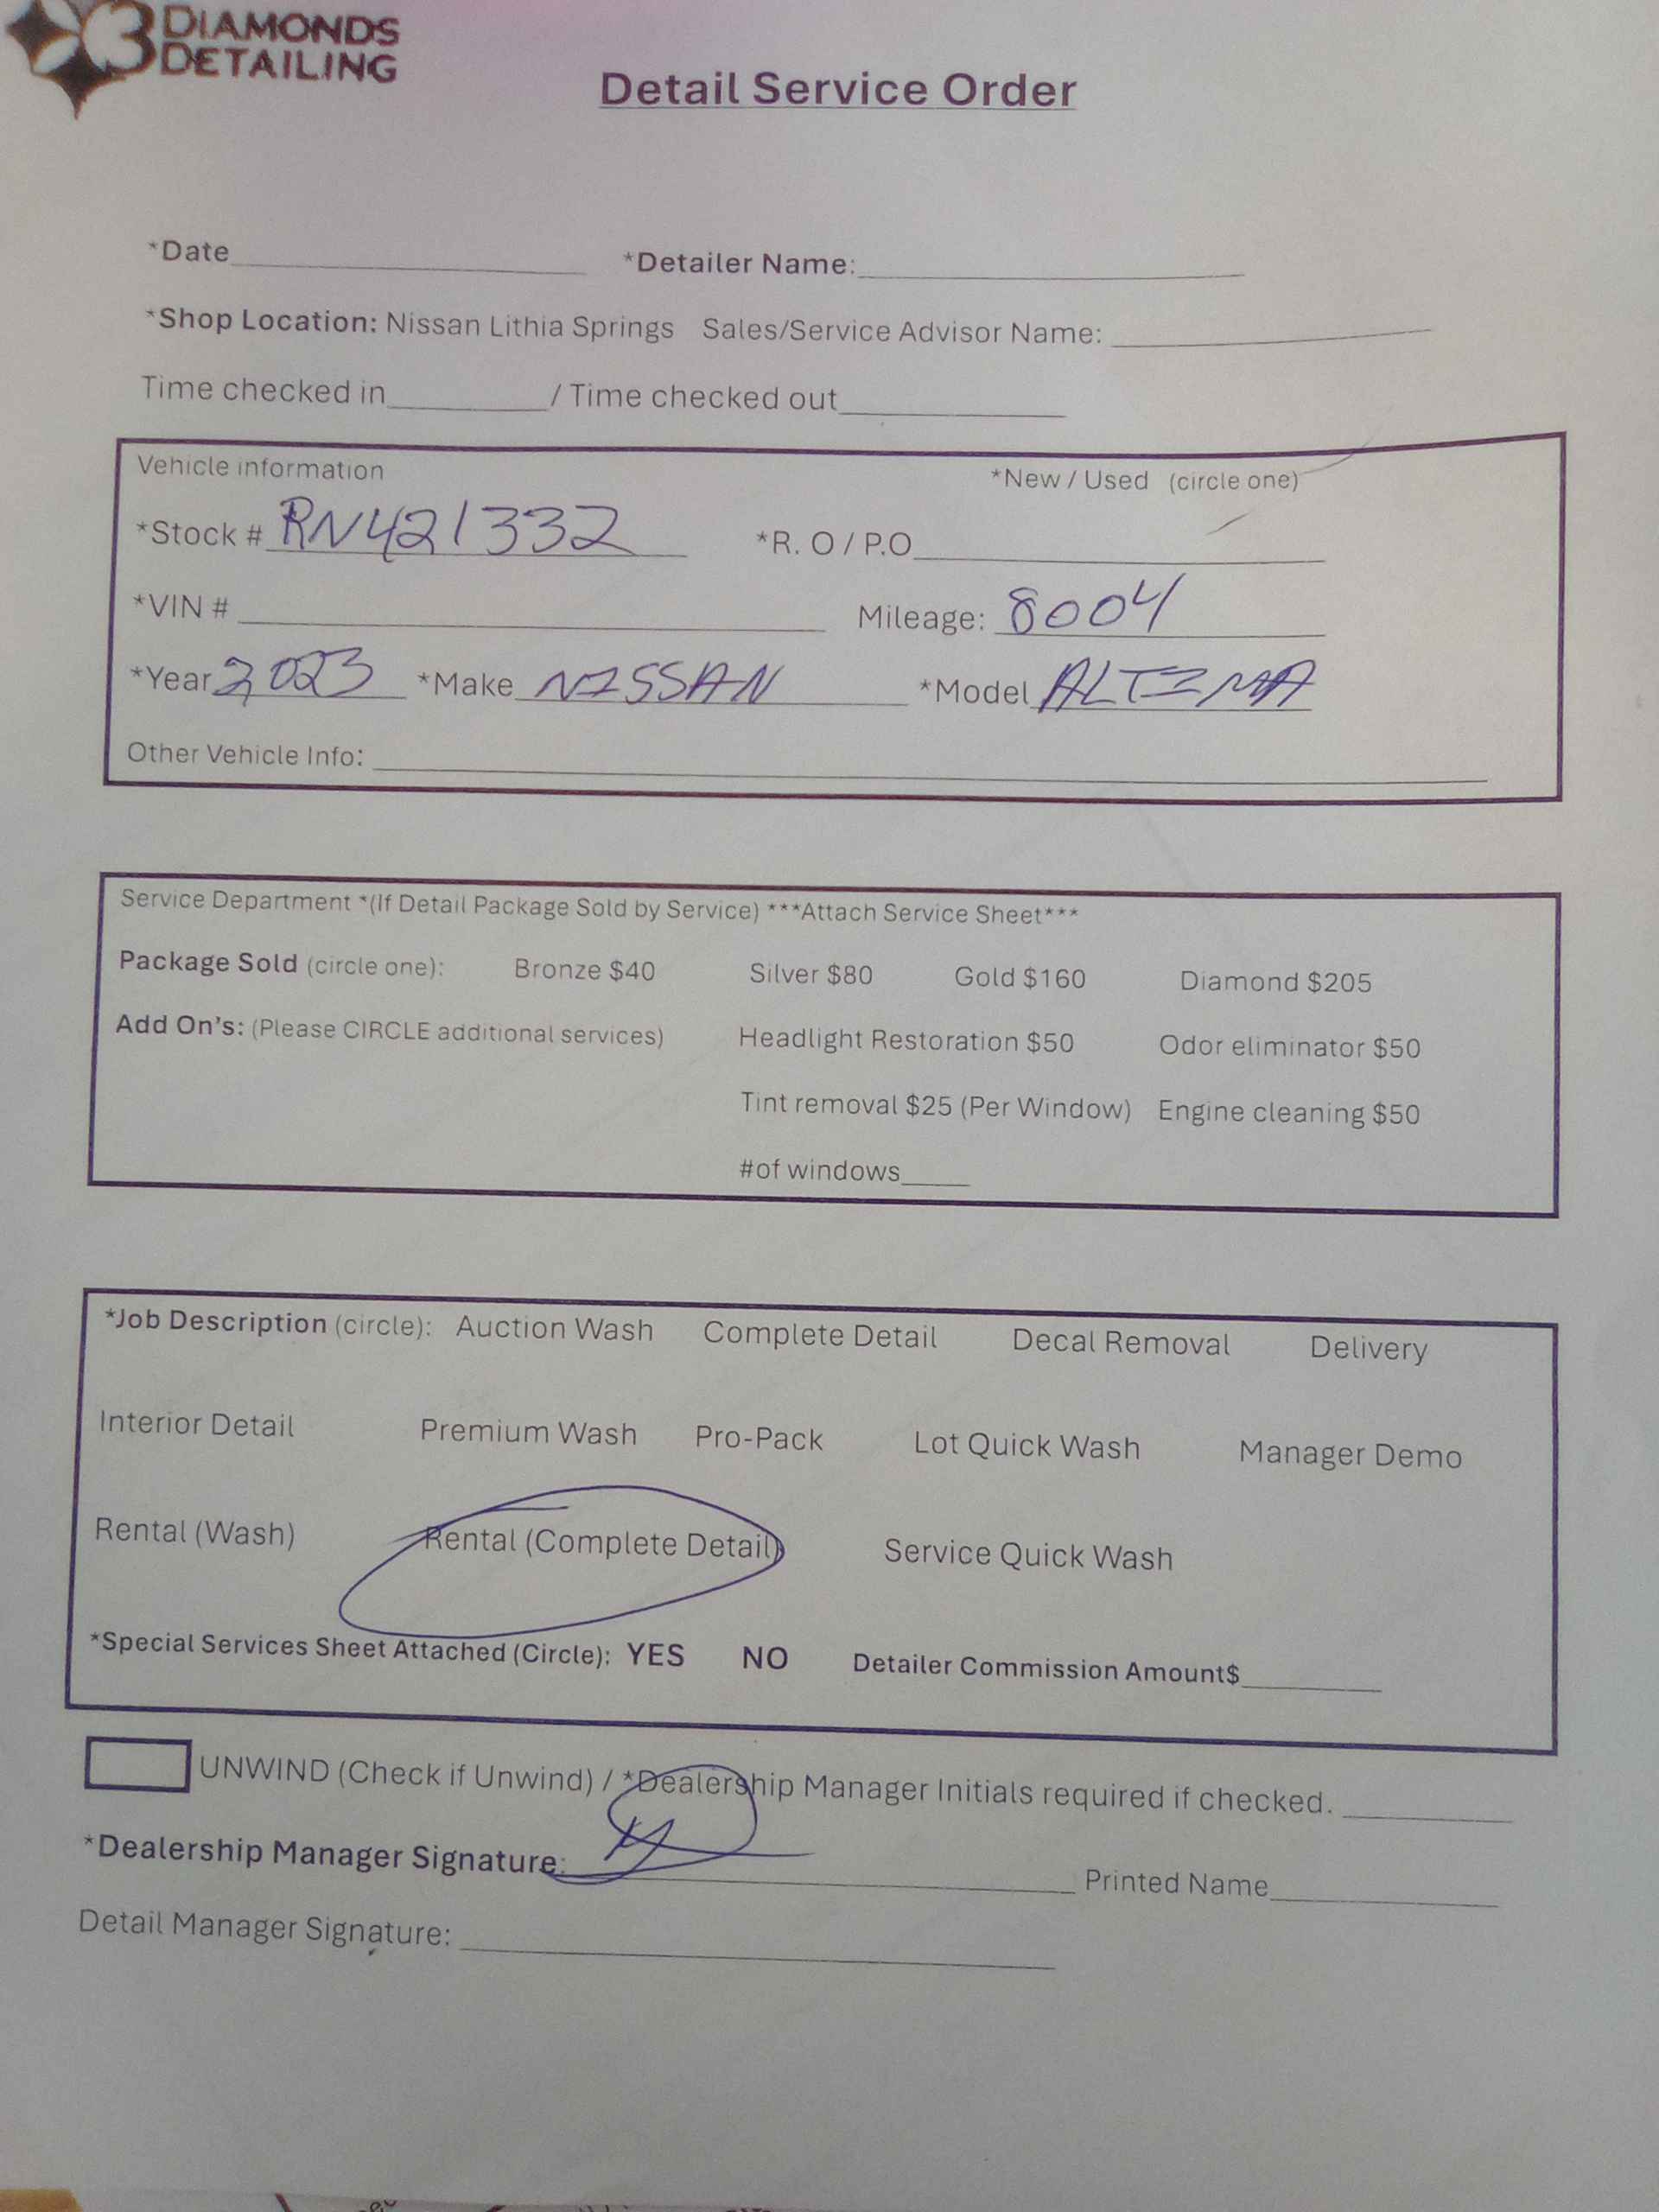 3 DIAMONDS
DETAILING
Detail Service Order
*Date____ *Detailer Name:____
*Shop Location: Nissan Lithia Springs Sales/Service Advisor Name: ____
Time checked in____ / Time checked out____
Vehicle information *New / Used (circle one)
*Stock # RN421332 *R. O / P.O____
*VIN # ____ Mileage: 8004
*Year 2023 *Make NISSAN *Model ALTIMA
Other Vehicle Info: ____
Service Department *(If Detail Package Sold by Service) ***Attach Service Sheet***
Package Sold (circle one): Bronze $40 Silver $80 Gold $160 Diamond $205
Add On's: (Please CIRCLE additional services) Headlight Restoration $50 Odor eliminator $50
Tint removal $25 (Per Window) Engine cleaning $50
#of windows____
*Job Description (circle): Auction Wash Complete Detail Decal Removal Delivery
Interior Detail Premium Wash Pro-Pack Lot Quick Wash Manager Demo
Rental (Wash) Rental (Complete Detail) Service Quick Wash
*Special Services Sheet Attached (Circle): YES NO Detailer Commission Amount$____
UNWIND (Check if Unwind) / *Dealership Manager Initials required if checked. ____
*Dealership Manager Signature: ____ Printed Name____
Detail Manager Signature: ____